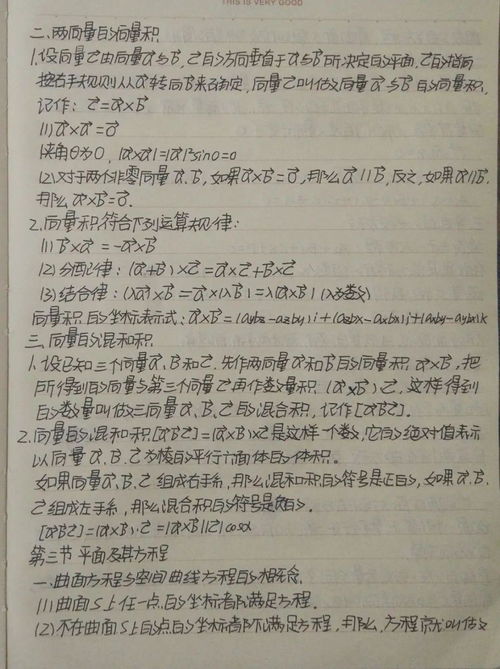 THIS IS VERY GOOD
二、两向量的向量积
1.设向量c⃗由向量a⃗与b⃗,c⃗的方向垂直于a⃗与b⃗所决定的平面,c⃗的指向
按右手规则从a⃗转向b⃗来确定,向量c⃗叫做向量a⃗与b⃗的向量积,
记作:c⃗=a⃗×b⃗
(1)a⃗×a⃗=0⃗
夹角θ为0,|a⃗×a⃗|=|a⃗|²sin0=0
(2)对于两个非零向量a⃗.b⃗,如果a⃗×b⃗=0⃗,那么a⃗∥b⃗,反之,如果a⃗∥b⃗,
那么a⃗×b⃗=0⃗.
2.向量积符合下列运算规律:
(1)b⃗×a⃗=-a⃗×b⃗
(2)分配律:(a⃗+b⃗)×c⃗=a⃗×c⃗+b⃗×c⃗
(3)结合律:(λa⃗)×b⃗=a⃗×(λb⃗)=λ(a⃗×b⃗)(λ为数)
向量积的坐标表示式:a⃗×b⃗=(aybz-azby)i+(azbx-axbz)j+(axby-aybx)k
三.向量的混和积.
1.设已知三个向量a⃗.b⃗和c⃗.先作两向量a⃗和b⃗的向量积a⃗×b⃗,把
所得到的向量与第三个向量c⃗再作数量积(a⃗×b⃗)c⃗,这样得到
的数量叫做三向量a⃗.b⃗.c⃗的混合积,记作[a⃗b⃗c⃗].
2.向量的混和积[a⃗b⃗c⃗]=(a⃗×b⃗)×c⃗是这样一个数,它的绝对值表示
以向量a⃗.b⃗.c⃗为棱的平行六面体的体积。
如果向量a⃗.b⃗.c⃗组成右手系,那么混和积的符号是正的,如果a⃗.b⃗.
c⃗组成左手系,那么混合积的符号是负的.
[a⃗b⃗c⃗]=(a⃗×b⃗)·c⃗=|a⃗×b⃗||c⃗|cosα
第三节 平面及其方程
一.曲面方程与空间曲线方程的概念.
(1)曲面S上任一点的坐标都满足方程.
(2)不在曲面S上的点的坐标都不满足方程,那么,方程就叫做